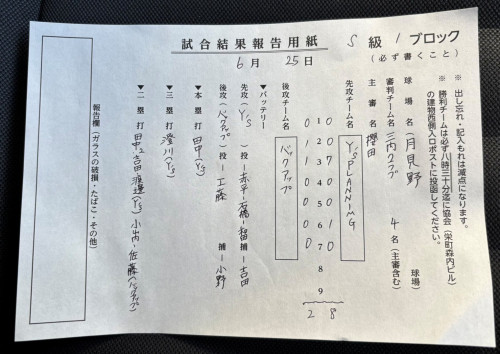 試合結果報告用紙 S級 1 ブロック
(必ず書くこと)
6月 25日
※ 出し忘れ・記入もれは減点になります。
※ 勝利チームは必ず八時三十分迄に協会(栄町森内ビル)
の建物西側入口ポストに投函してください。
球場名(月見野 球場)
審判チーム名 三内クラブ 4名(主審含む)
主審名 櫻田
先攻チーム名 Y'S PLANNING
1 2 3 4 5 6 7 8 9
後攻チーム名 バックアップ
▼バッテリー
先攻(Y'S)投ー赤平ー石橋ー 捕ー吉田
後攻(バックアップ)投ー工藤 捕ー小野
▼本塁打 田中(Y'S)
▼三塁打 澄川(Y'S)
▼二塁打 田中2 吉田 渡邊(Y'S) 小山内・佐藤(バックアップ)
報告欄(ガラスの破損・たばこ・その他)